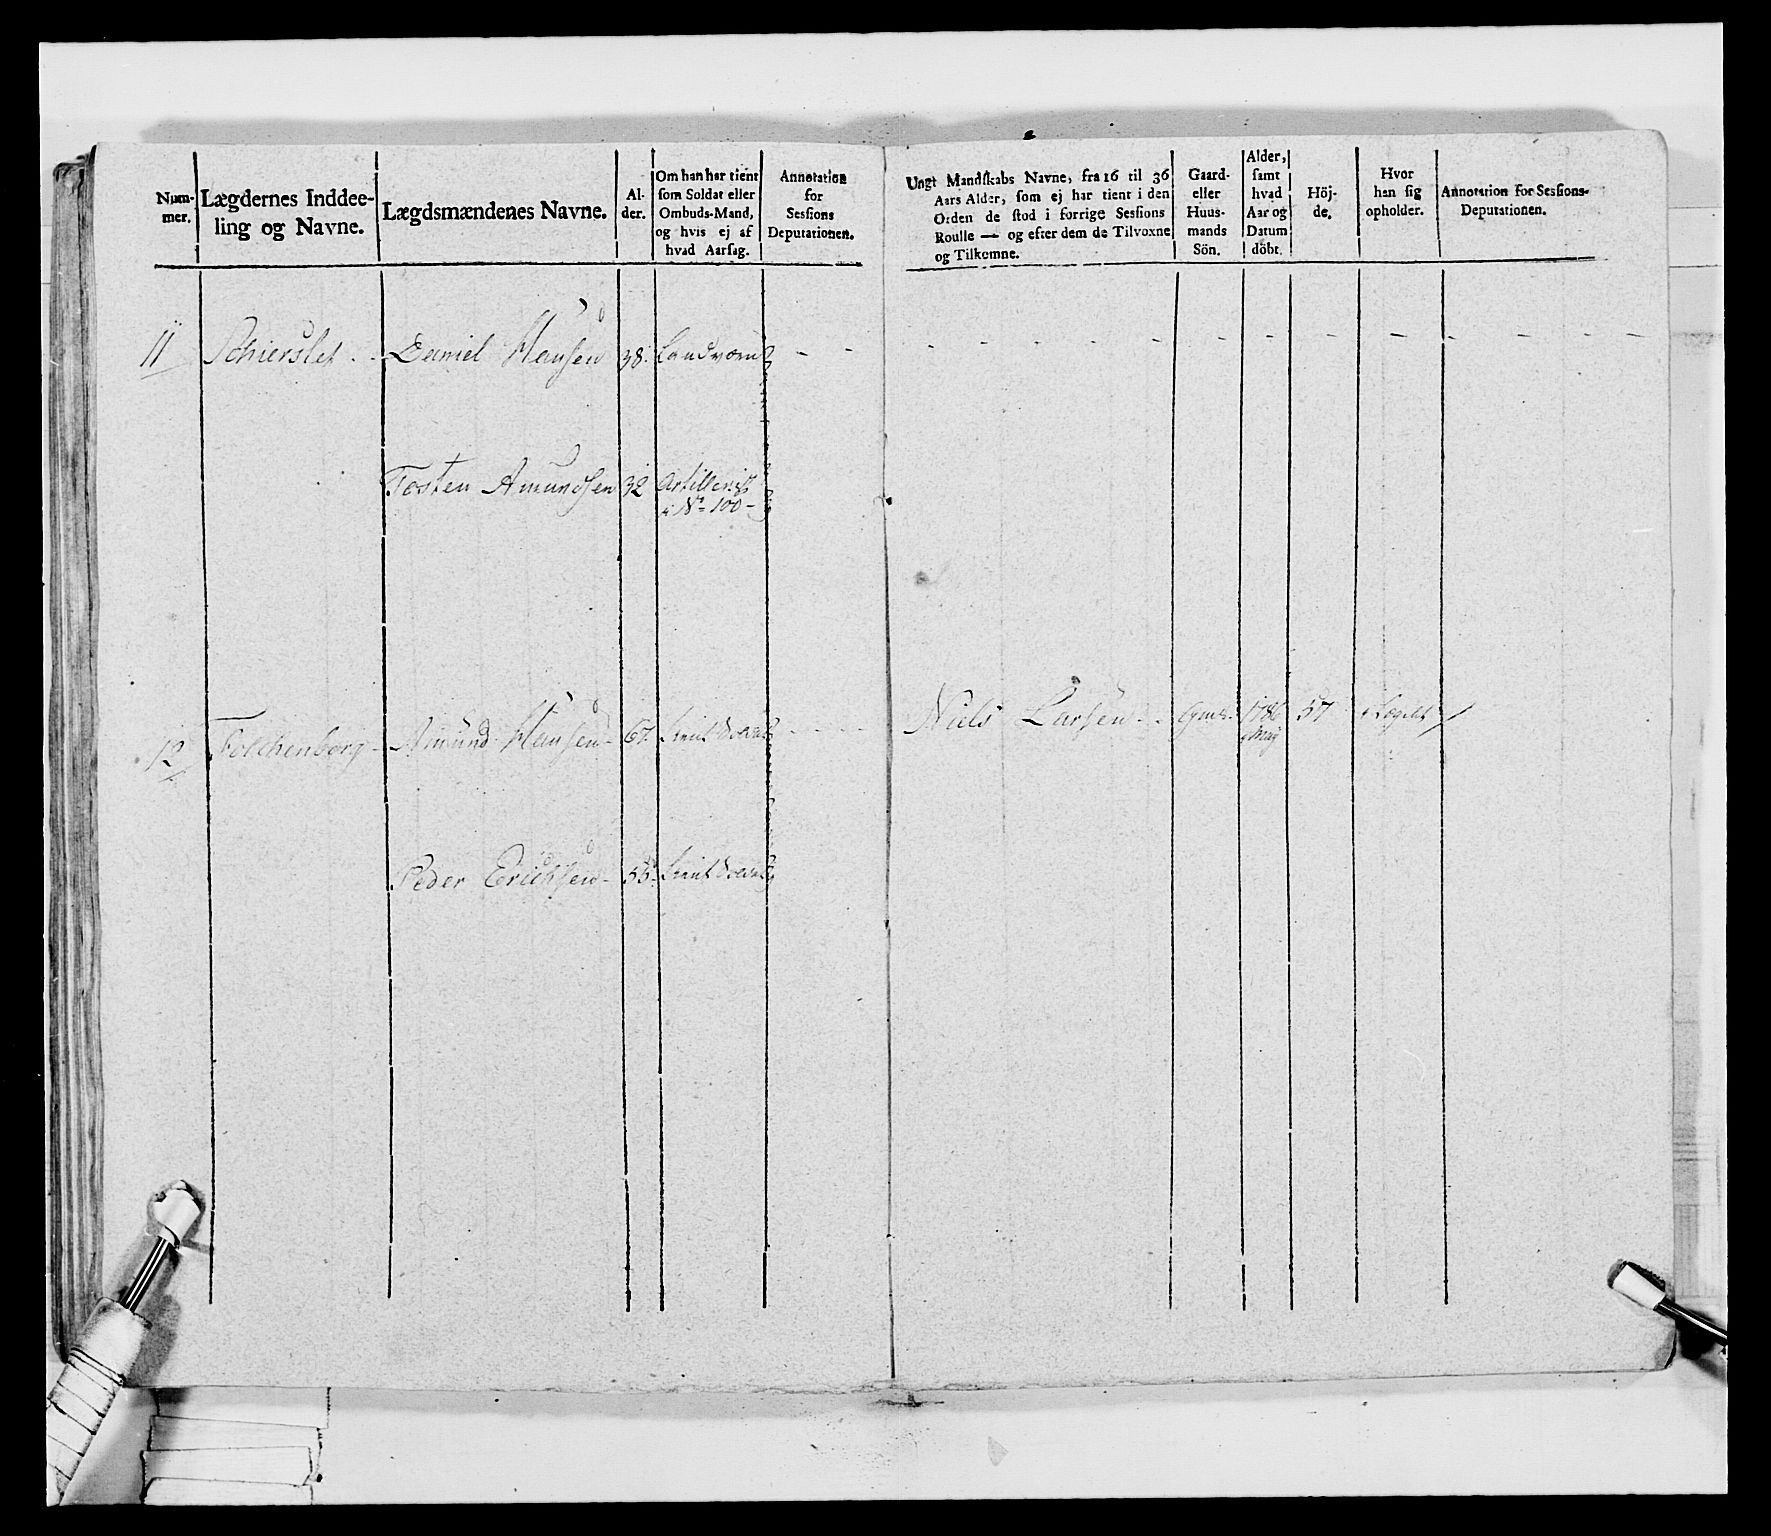 Num-
mer.
Lægdernes Inddee-
ling og Navne.
Lægdsmændenes Navne.
Al-
der.
Om han har tient
som Soldat eller
Ombuds-Mand,
og hvis ej af
hvad Aarsag.
Annotation
for
Sessions
Deputationen.
Ungt Mandskabs Navne, fra 16 til 36
Aars Alder, som ej har tient i den
Orden de stod i forrige Sessions
Roulle — og efter dem de Tilvoxne
og Tilkomne.
Gaard-
eller
Huus-
mands
Sön.
Alder,
samt
hvad
Aar og
Datum
döbt.
Höj-
de.
Hvor
han sig
opholder.
Annotation for Sessions-
Deputationen.
11 Schierslet - Daniel Hansen 38. Landværn - - - - - - - - - - - - - - - -
Tosten Amundsen 32 Artillerist
i No 100 -
12 Folchenborg - Amund Hansen - 67. - - - - Niels Larsen - - Gmds. 1786 57 i Lægdet
May
Peder Erichsen - 55.